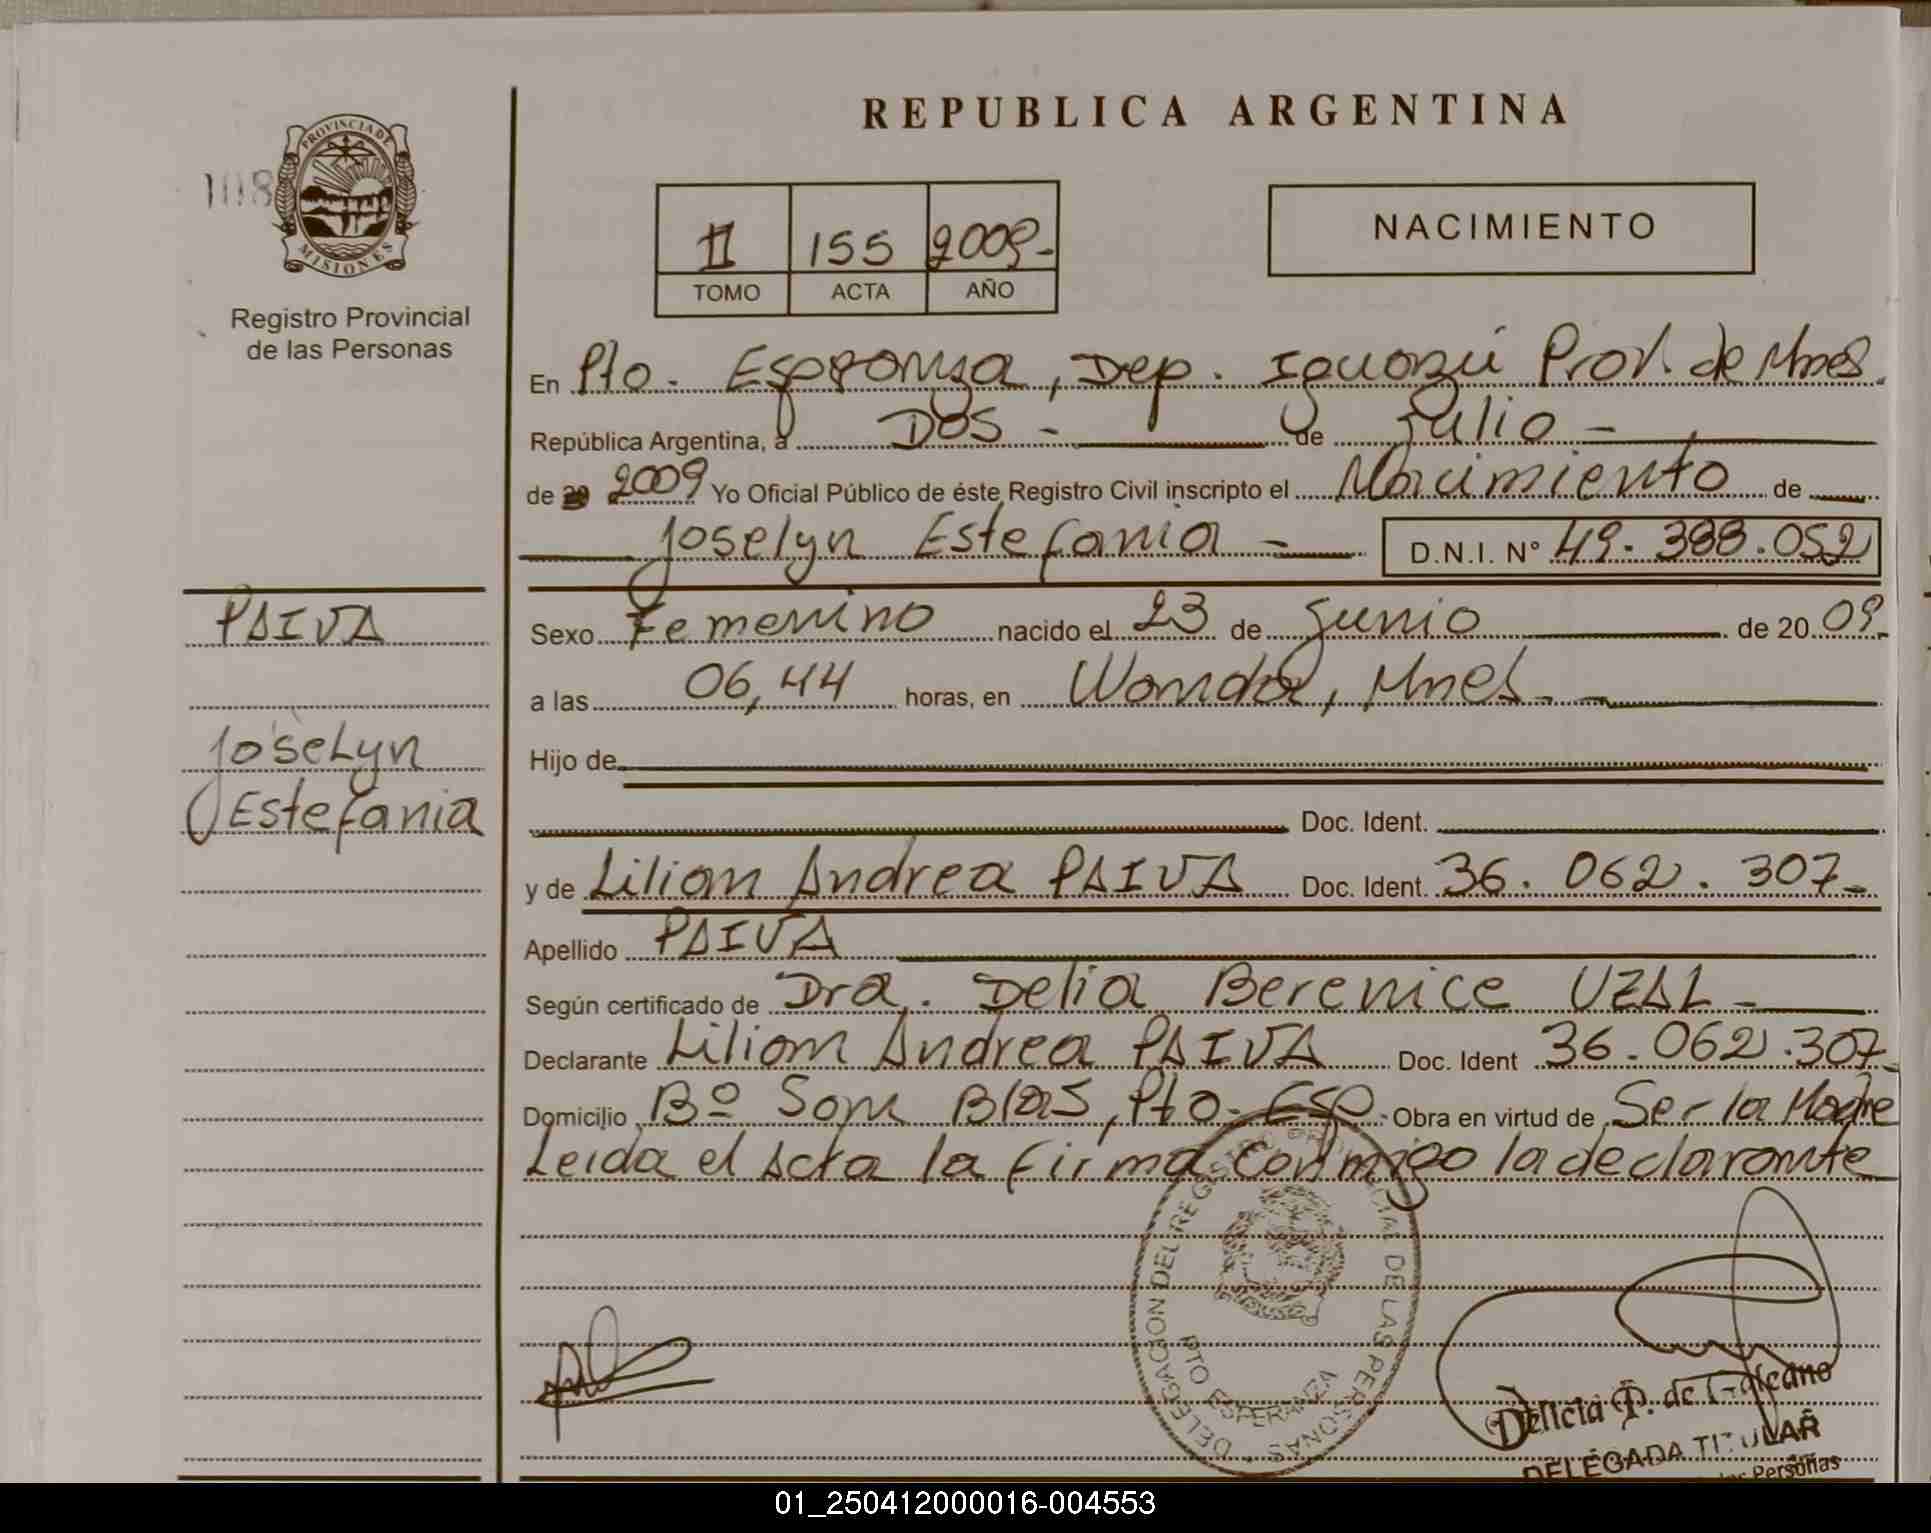 REPUBLICA ARGENTINA
108
PROVINCIA DE
MISIONES
Registro Provincial
de las Personas
II 155 2009-
TOMO ACTA AÑO
NACIMIENTO
En Pto. Esperanza, Dep. Iguazú Prov. de Mnes.
República Argentina, a DOS - de Julio -
de 20 2009 Yo Oficial Público de éste Registro Civil inscripto el Nacimiento de
Joselyn Estefania - D.N.I. N° 49.388.052
PAIVA
Sexo Femenino nacido el 23 de Junio de 20 09-
a las 06,44 horas, en Wanda, Mnes. -
Joselyn
Estefania
Hijo de
Doc. Ident.
y de Lilian Andrea PAIVA Doc. Ident. 36.062.307-
Apellido PAIVA
Según certificado de Dra. Delia Berenice UZAL -
Declarante Lilian Andrea PAIVA Doc. Ident 36.062.307-
Domicilio Bº San Blas, Pto. Esp. Obra en virtud de Ser la Madre
Leida el Acta la firma conmigo la declarante
DELEGACION DEL REGISTRO PROVINCIAL DE LAS PERSONAS
PTO ESPERANZA
Delicia P. de Galeano
DELEGADA TITULAR
Personas
01_250412000016-004553